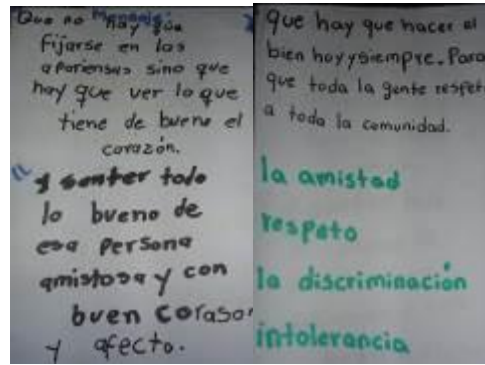 Mensaje:
Que no hay que
fijarse en las
apariensas sino que
hay que ver lo que
tiene de bueno el
corazón.
y senter todo
lo bueno de
esa persona
amistosa y con
buen corason
y afecto.
que hay que hacer el
bien hoy y siempre. Para
que toda la gente respet
a toda la comunidad.
la amistad
respeto
la discriminación
intolerancia